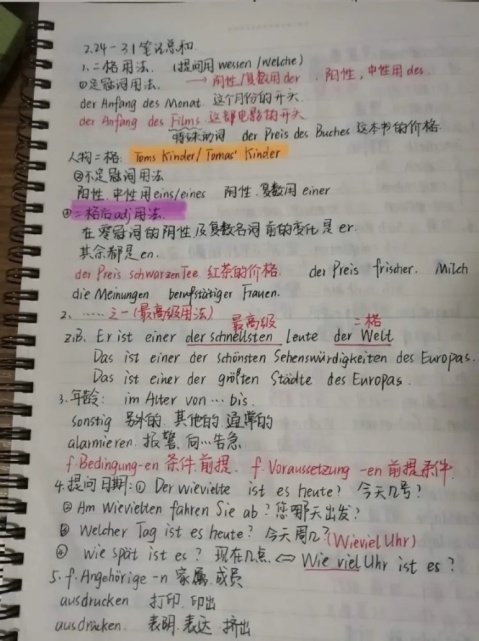 2.24-31笔记总和
1.二格用法. (提问用 wessen/welche)
①定冠词用法. → 阴性/复数用der . 阳性,中性用des.
der Anfang des Monat 这个月份的开头.
der Anfang des Films 这部电影的开头
特殊的词 der Preis des Buches 这本书的价格.
人物二格: Toms Kinder/Tomas' Kinder
②不定冠词用法
阳性.中性用eins/eines 阴性.复数用 einer
③二格后adj用法.
在零冠词的阴性及复数名词前的变化是er.
其余都是en.
der Preis schwarzen Tee 红茶的价格. der Preis frischer. Milch
die Meinungen berufstätiger Frauen.
2. ……之一(最高级用法) 最高级 二格
z.B. Er ist einer der schnellsten Leute der Welt
Das ist einer der schönsten Sehenswürdigkeiten des Europas.
Das ist einer der größten Städte des Europas.
3.年龄: im Alter von … bis.
sonstig 另外的.其他的.通常的
alarmieren 报警.向…告急
f. Bedingung-en 条件.前提. f. Voraussetzung -en 前提.条件.
4.提问日期:① Der wievielte ist es heute? 今天几号?
② Am wievielten fahren Sie ab? 您哪天出发?
③ Welcher Tag ist es heute? 今天周几?(Wieviel Uhr)
④ wie spät ist es? 现在几点 ⇔ Wie viel Uhr ist es?
5. f. Angehörige -n 家属.成员
ausdrucken 打印.印出
ausdrücken. 表明.表达.挤出